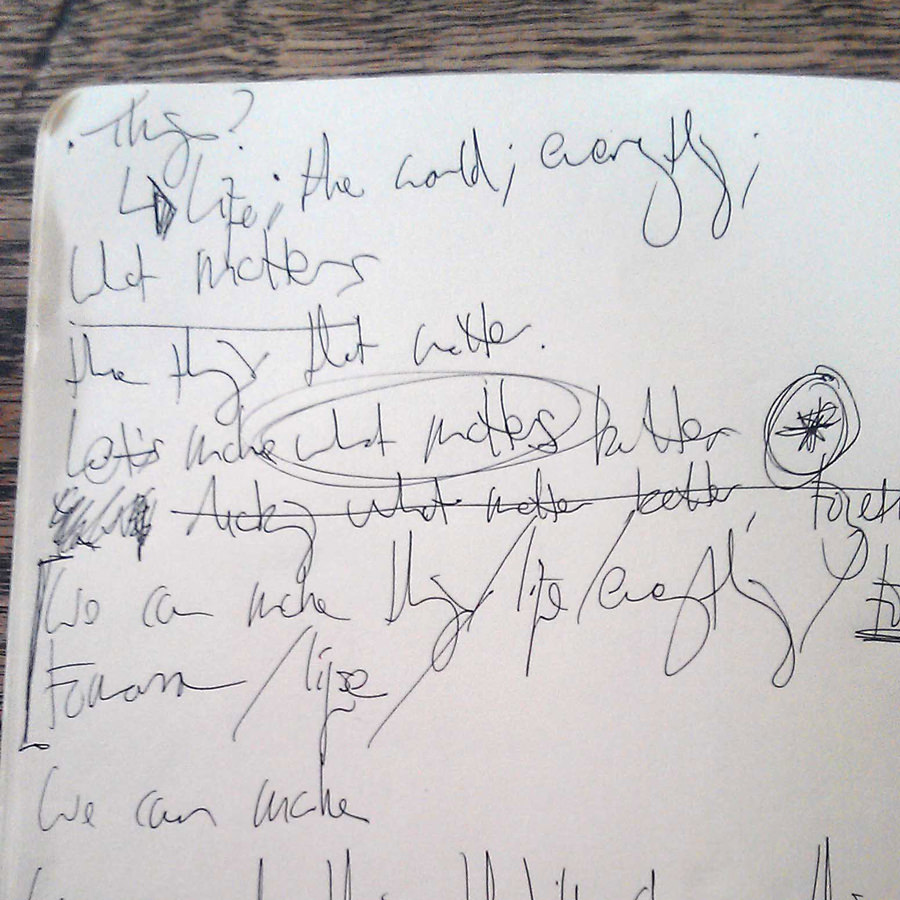 Things?
Life; the world; everything;
What matters
the things that matter.
Let's make what matters better
making what matter better,
We can make things/life/everything
/life
We can make